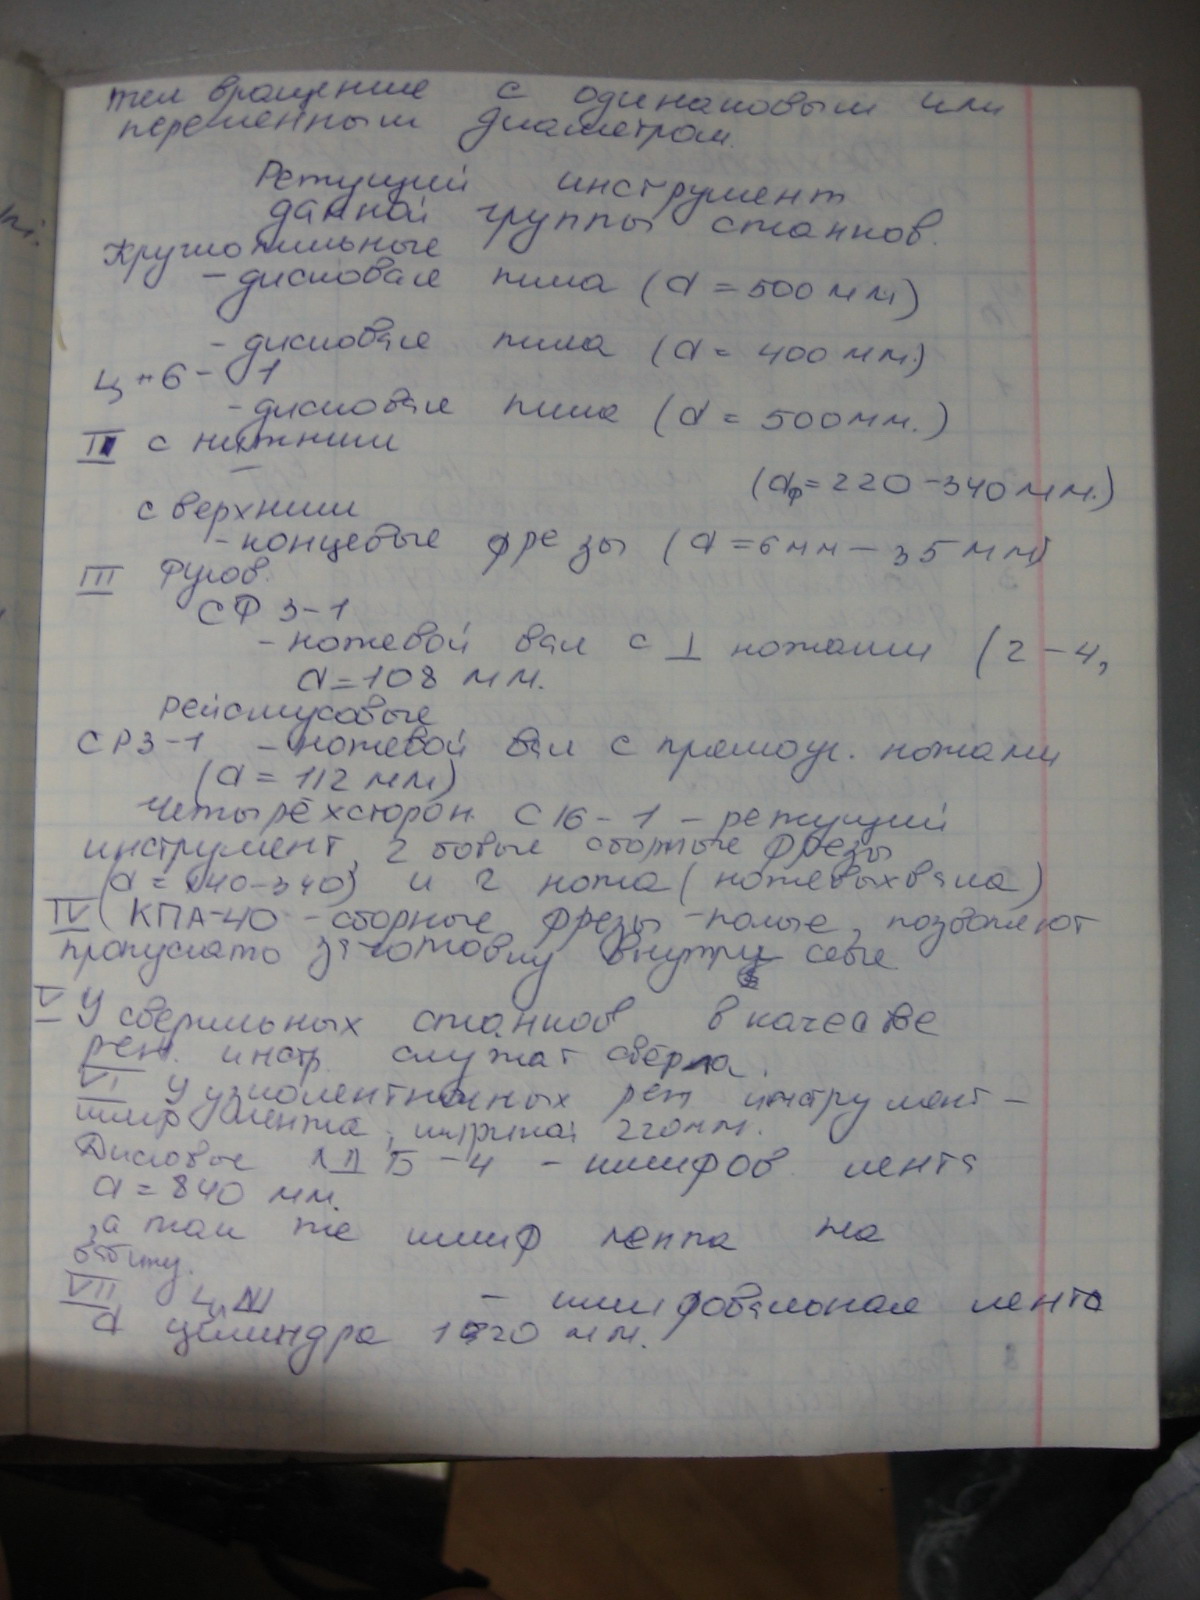 тел вращение с одинаковым или
переменным диаметром.
Режущий инструмент
данной группы станков.
Круглопильные
- дисковая пила (d = 500 мм)
- дисковая пила (d = 400 мм.)
Ц-6-1
- дисковая пила (d = 500мм.)
II с нижним
(dф = 220-340мм.)
с верхним
- концевые фрезы (d = 6мм - 35мм)
III Фугов.
СФ 3-1
- ножевой вал с ⊥ ножами (2-4,
d = 108 мм.
Рейсмусовые
СР3-1 - ножевой вал с прямоуг. ножами
(d = 112 мм)
Четырёхсторон. С16-1 - режущий
инструмент, 2 боковые сборные фрезы
(d = 140-340) и 2 ножа (ножевых вала)
IV КПА-40 - сборные фрезы - полые, позволяют
пропускать заготовку внутри себя
V У сверильных станков в качестве
реж. инстр. служат сверла.
VI У узколентночных реж инструмент -
шлиф лента, ширина 220мм.
Дисковые - шлифов. лента
d = 840 мм.
, а так же шлиф лента на
бабину.
VII - шлифовальная лента
d цилиндра мм.